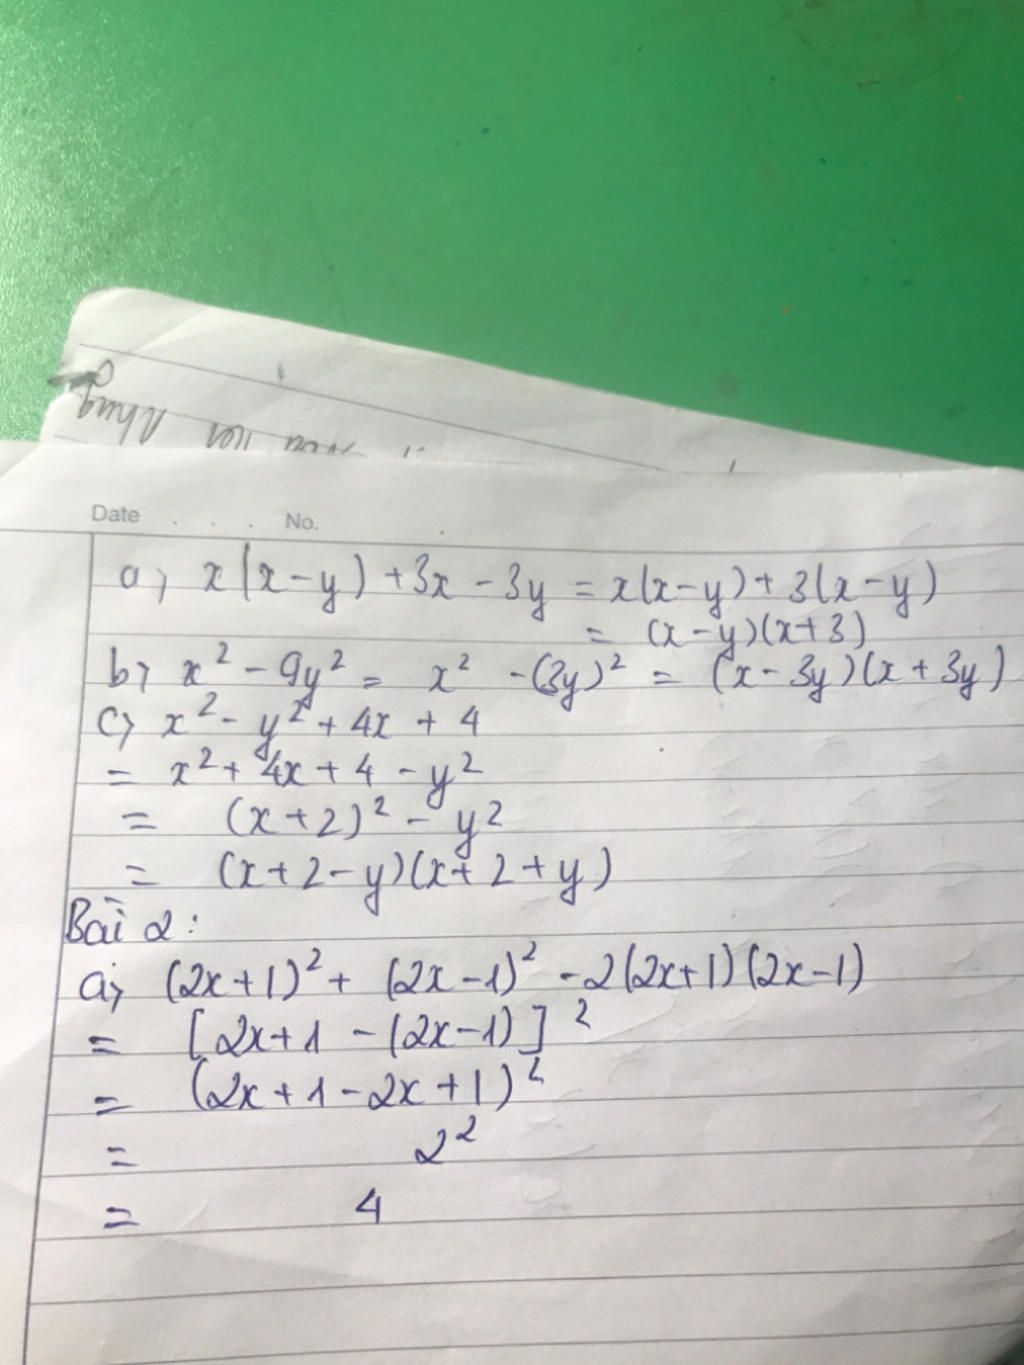 Date . . . No.
a, x(x-y) + 3x - 3y = x(x-y) + 3(x-y)
= (x-y)(x+3)
b, x² - 9y² = x² - (3y)² = (x-3y)(x+3y)
c, x² - y² + 4x + 4
= x² + 4x + 4 - y²
= (x+2)² - y²
= (x+2-y)(x+2+y)
Bài 2:
a, (2x+1)² + (2x-1)² - 2(2x+1)(2x-1)
= [2x+1 - (2x-1)]²
= (2x+1-2x+1)²
= 2²
= 4